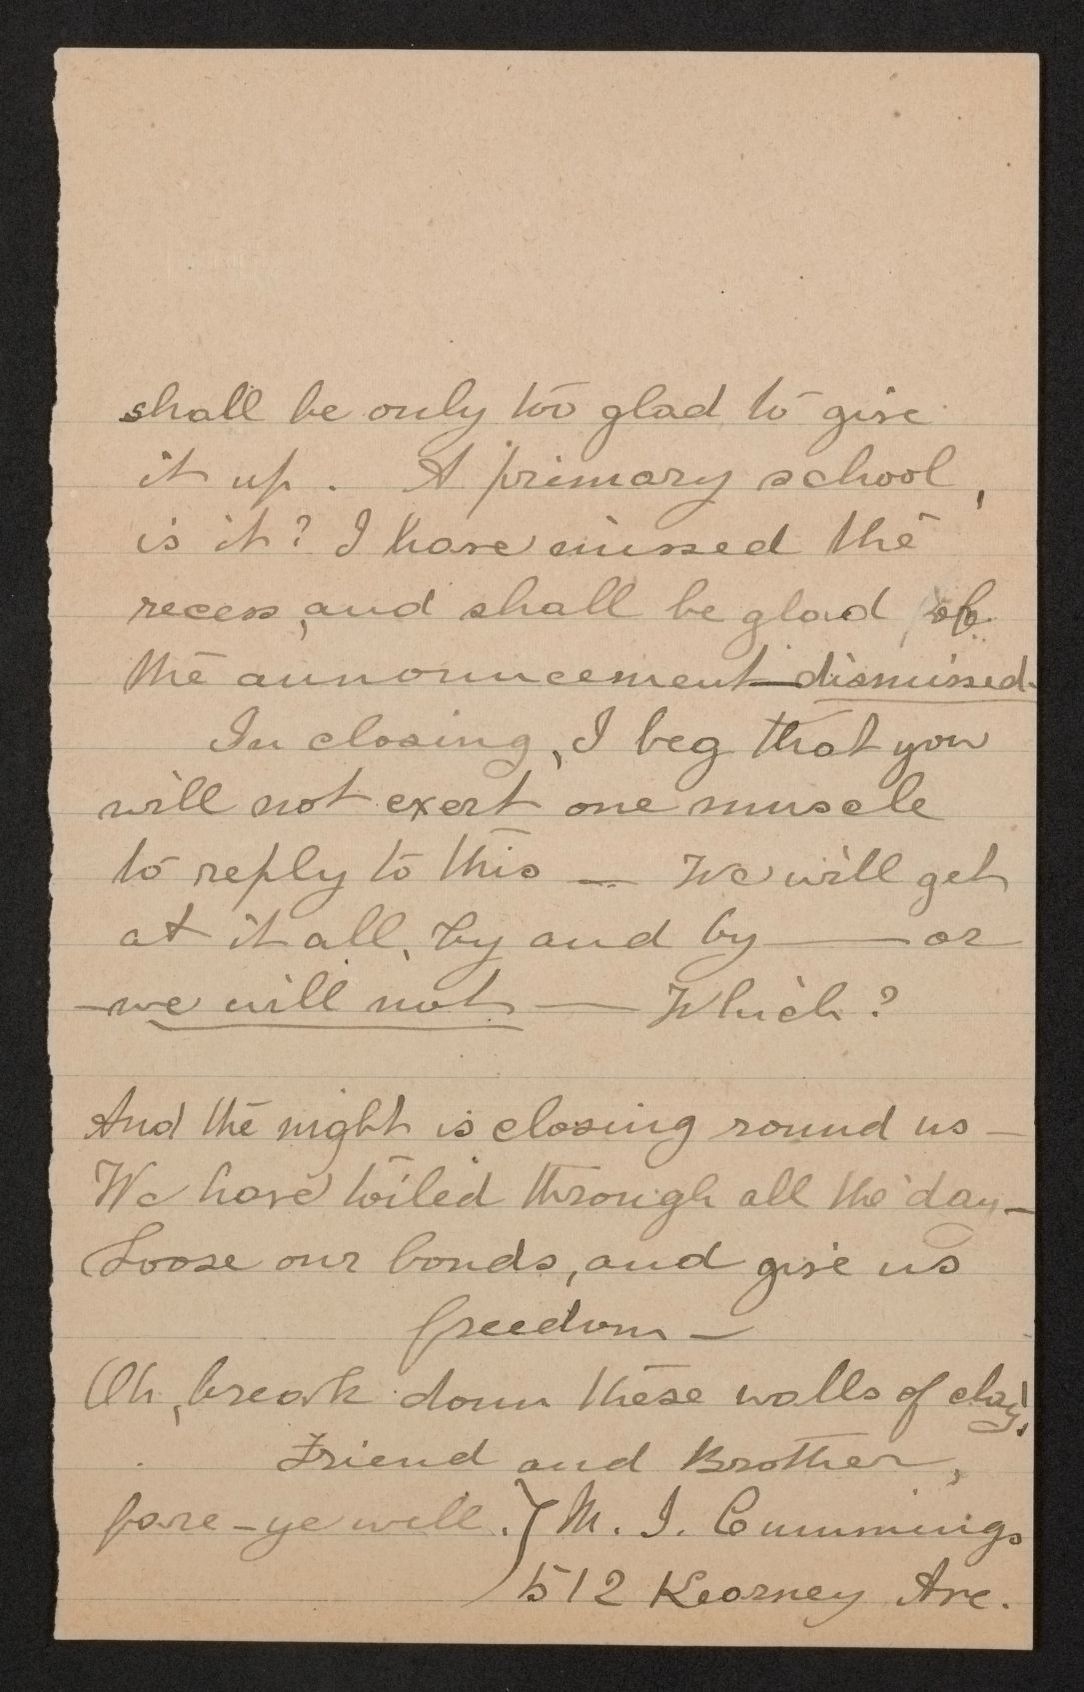 shall be only too glad to give
it up. A primary school,
is it? I have missed the
recess, and shall be glad of
the announcement—dismissed.
In closing, I beg that you
will not exert one muscle
to reply to this — We will get
at it all, by and by — or
we will not — Which?
And the night is closing round us —
We have toiled through all the day —
Loose our bonds, and give us
freedom —
Oh, break down these walls of clay!
Friend and Brother,
fare-ye well. } M. I. Cummings
512 Kearney Ave.